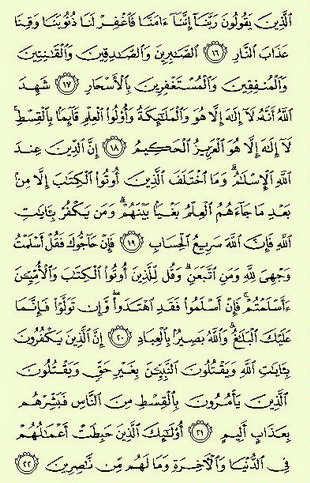 ٱلَّذِينَ يَقُولُونَ رَبَّنَآ إِنَّنَآ ءَامَنَّا فَٱغْفِرْ لَنَا ذُنُوبَنَا وَقِنَا
عَذَابَ ٱلنَّارِ ﴿١٦﴾ ٱلصَّـٰبِرِينَ وَٱلصَّـٰدِقِينَ وَٱلْقَـٰنِتِينَ
وَٱلْمُنفِقِينَ وَٱلْمُسْتَغْفِرِينَ بِٱلْأَسْحَارِ ﴿١٧﴾ شَهِدَ
ٱللَّهُ أَنَّهُۥ لَآ إِلَـٰهَ إِلَّا هُوَ وَٱلْمَلَـٰٓئِكَةُ وَأُو۟لُوا۟ ٱلْعِلْمِ قَآئِمًۢا بِٱلْقِسْطِ ۚ
لَآ إِلَـٰهَ إِلَّا هُوَ ٱلْعَزِيزُ ٱلْحَكِيمُ ﴿١٨﴾ إِنَّ ٱلدِّينَ عِندَ
ٱللَّهِ ٱلْإِسْلَـٰمُ ۗ وَمَا ٱخْتَلَفَ ٱلَّذِينَ أُوتُوا۟ ٱلْكِتَـٰبَ إِلَّا مِنۢ
بَعْدِ مَا جَآءَهُمُ ٱلْعِلْمُ بَغْيًۢا بَيْنَهُمْ ۗ وَمَن يَكْفُرْ بِـَٔايَـٰتِ
ٱللَّهِ فَإِنَّ ٱللَّهَ سَرِيعُ ٱلْحِسَابِ ﴿١٩﴾ فَإِنْ حَآجُّوكَ فَقُلْ أَسْلَمْتُ
وَجْهِىَ لِلَّهِ وَمَنِ ٱتَّبَعَنِ ۗ وَقُل لِّلَّذِينَ أُوتُوا۟ ٱلْكِتَـٰبَ وَٱلْأُمِّيِّـۧنَ
ءَأَسْلَمْتُمْ ۚ فَإِنْ أَسْلَمُوا۟ فَقَدِ ٱهْتَدَوا۟ ۖ وَّإِن تَوَلَّوْا۟ فَإِنَّمَا
عَلَيْكَ ٱلْبَلَـٰغُ ۗ وَٱللَّهُ بَصِيرٌۢ بِٱلْعِبَادِ ﴿٢٠﴾ إِنَّ ٱلَّذِينَ يَكْفُرُونَ
بِـَٔايَـٰتِ ٱللَّهِ وَيَقْتُلُونَ ٱلنَّبِيِّـۧنَ بِغَيْرِ حَقٍّ وَيَقْتُلُونَ
ٱلَّذِينَ يَأْمُرُونَ بِٱلْقِسْطِ مِنَ ٱلنَّاسِ فَبَشِّرْهُم
بِعَذَابٍ أَلِيمٍ ﴿٢١﴾ أُو۟لَـٰٓئِكَ ٱلَّذِينَ حَبِطَتْ أَعْمَـٰلُهُمْ
فِى ٱلدُّنْيَا وَٱلْـَٔاخِرَةِ وَمَا لَهُم مِّن نَّـٰصِرِينَ ﴿٢٢﴾